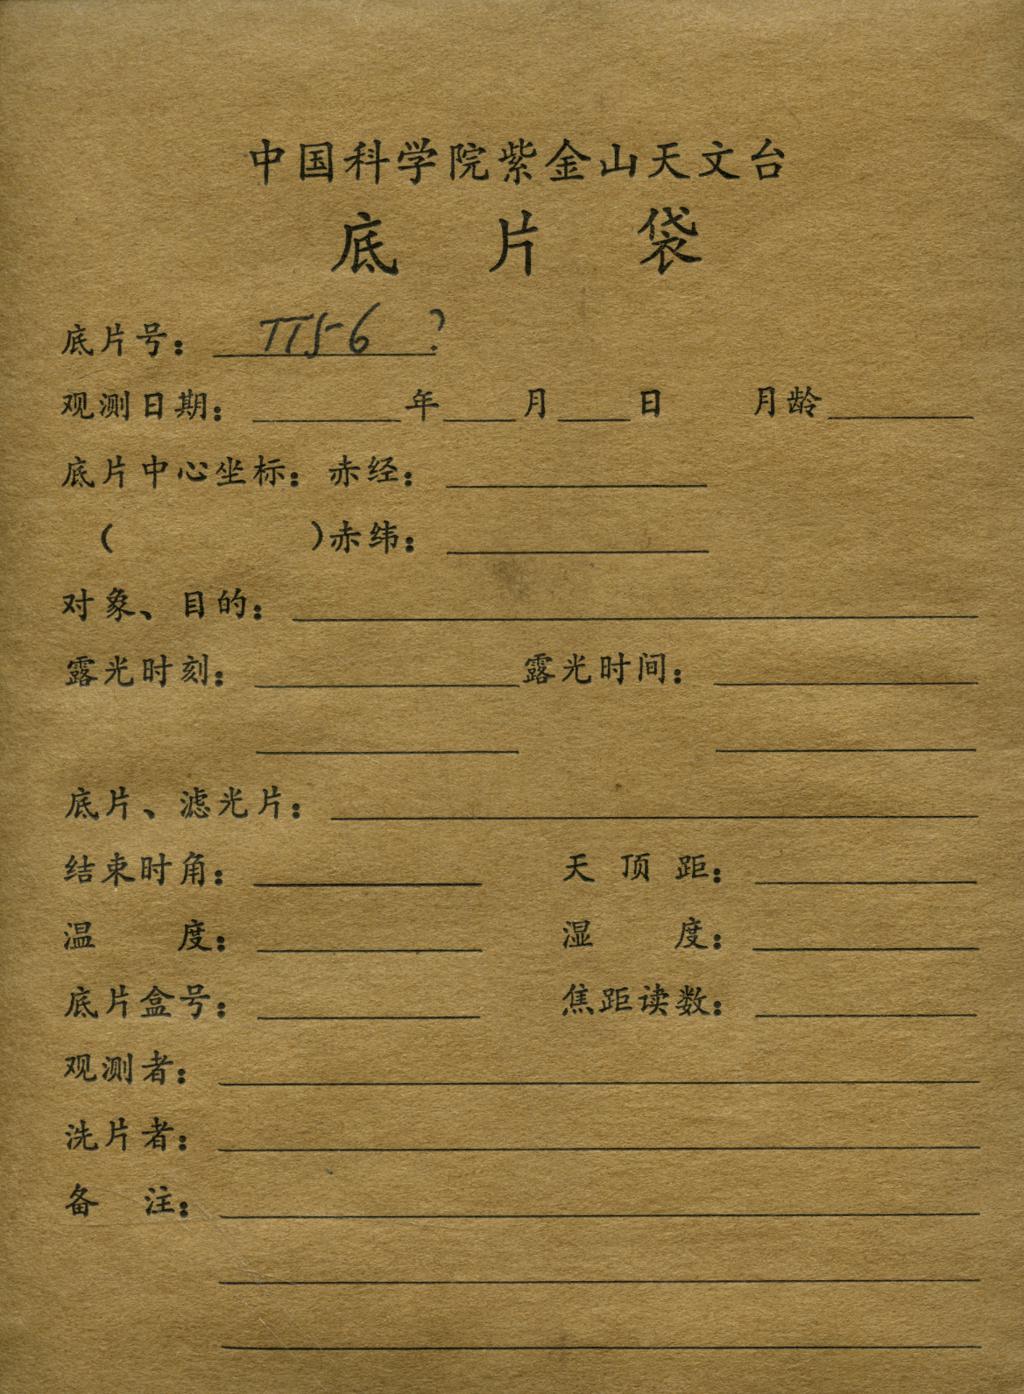 中国科学院紫金山天文台
底片袋
底片号： TT5-6 ?
观测日期： 年 月 日 月龄
底片中心坐标：赤经：
（ ）赤纬：
对象、目的：
露光时刻： 露光时间：
底片、滤光片：
结束时角： 天顶距：
温度： 湿度：
底片盒号： 焦距读数：
观测者：
洗片者：
备注：